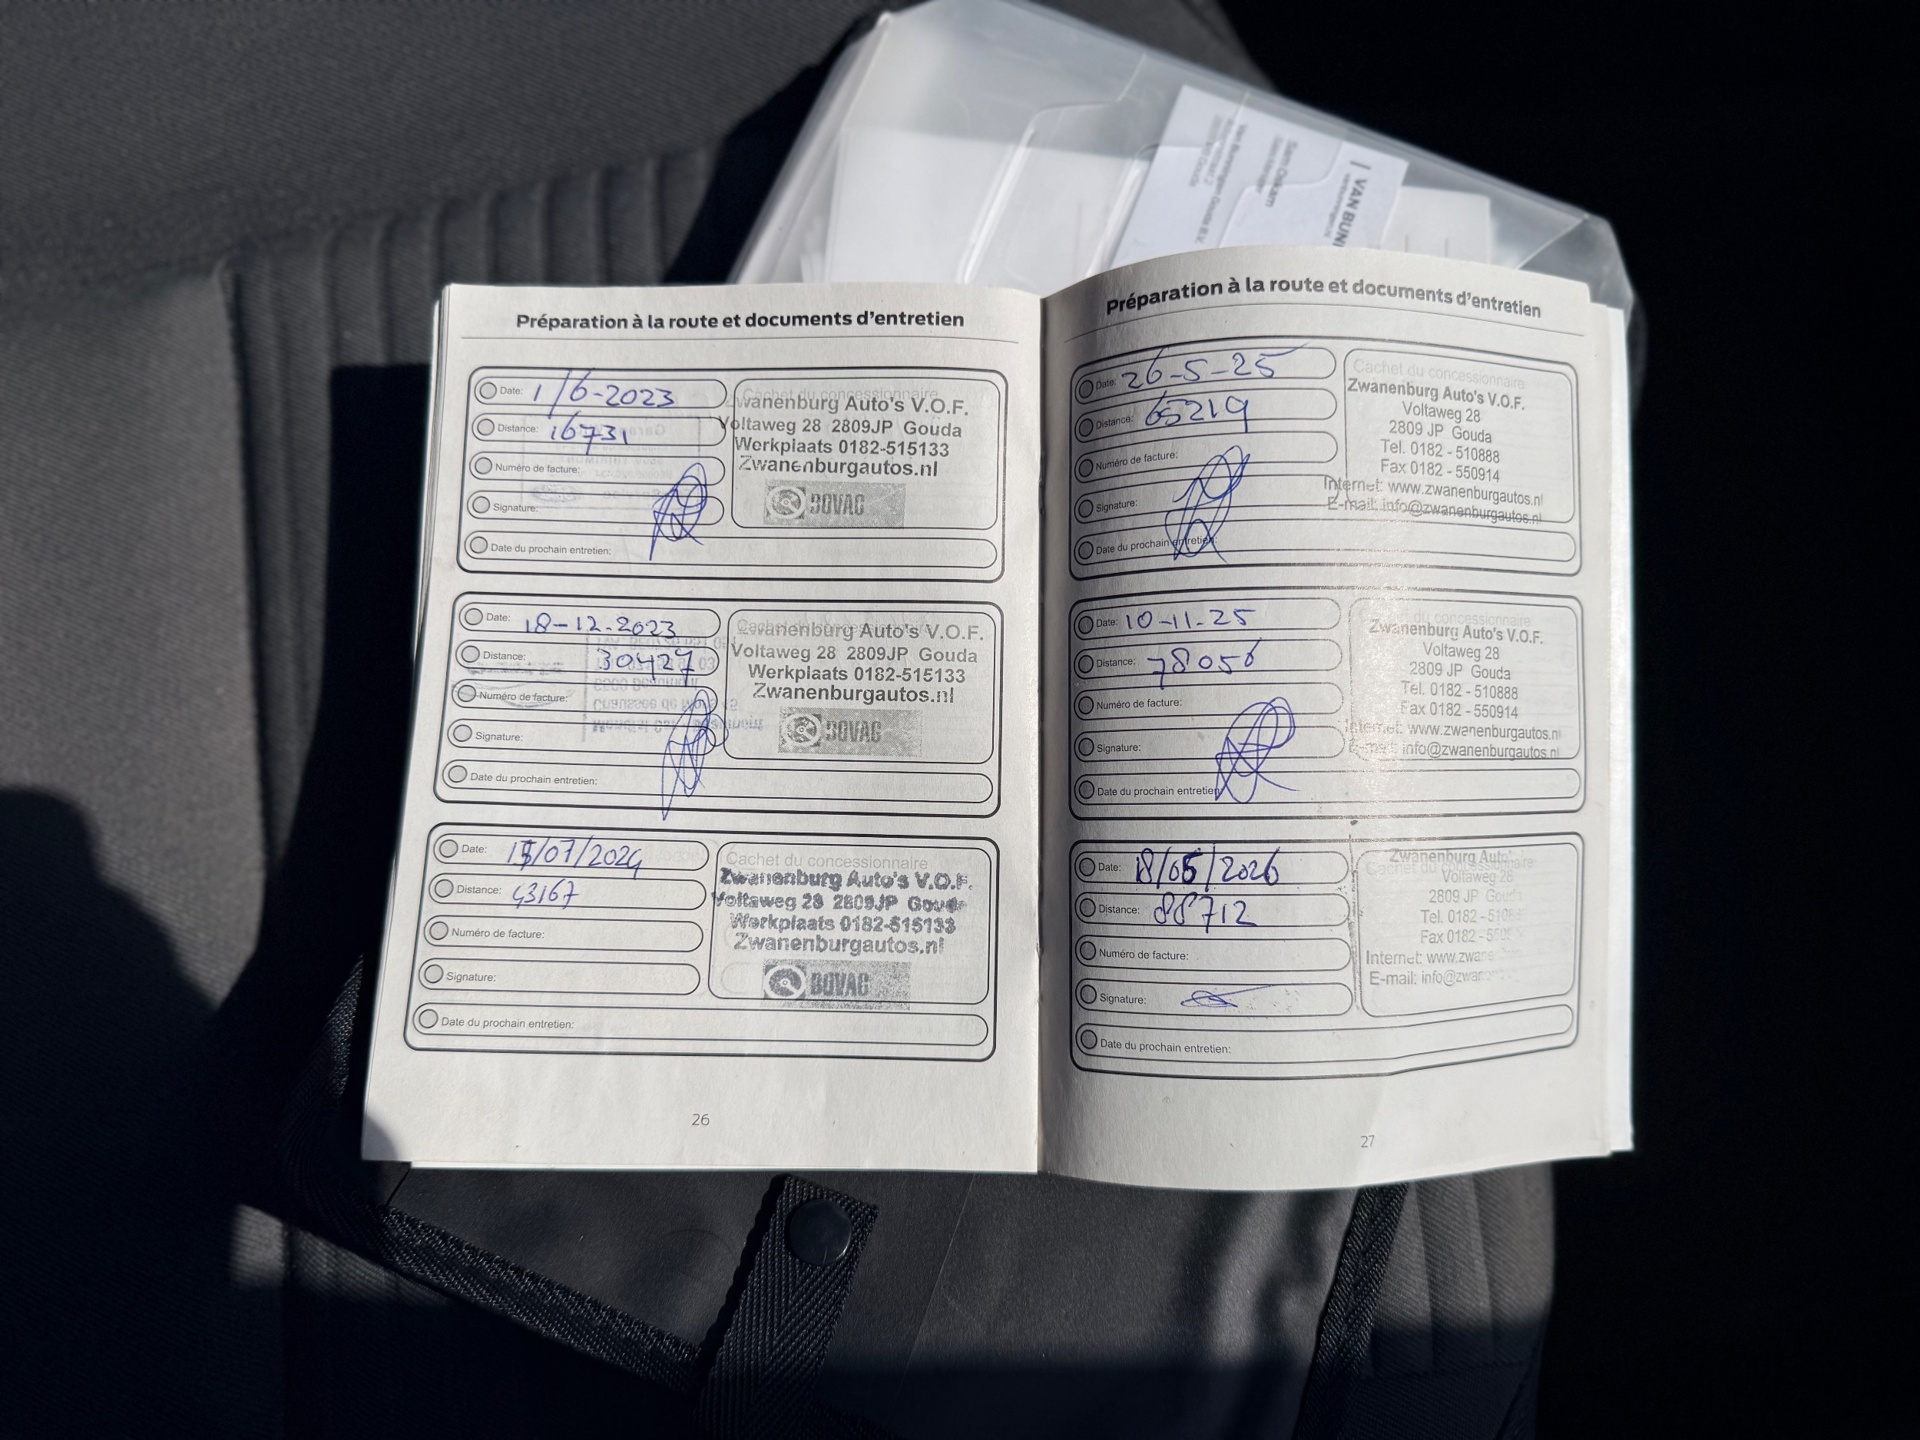 VAN BUN
Préparation à la route et documents d'entretien
Date: 1/6-2023
Distance: 16731
Numéro de facture:
Signature:
Date du prochain entretien:
Cachet du concessionnaire
Zwanenburg Auto's V.O.F.
Voltaweg 28 2809JP Gouda
Werkplaats 0182-515133
Zwanenburgautos.nl
BOVAG
Date: 18-12-2023
Distance: 30427
Numéro de facture:
Signature:
Date du prochain entretien:
Cachet du concessionnaire
Zwanenburg Auto's V.O.F.
Voltaweg 28 2809JP Gouda
Werkplaats 0182-515133
Zwanenburgautos.nl
BOVAG
Date: 15/07/2024
Distance: 43167
Numéro de facture:
Signature:
Date du prochain entretien:
Cachet du concessionnaire
Zwanenburg Auto's V.O.F.
Voltaweg 28 2809JP Gouda
Werkplaats 0182-515133
Zwanenburgautos.nl
BOVAG
26
Préparation à la route et documents d'entretien
Date: 26-5-25
Distance: 65219
Numéro de facture:
Signature:
Date du prochain entretien:
Cachet du concessionnaire
Zwanenburg Auto's V.O.F.
Voltaweg 28
2809 JP Gouda
Tel. 0182 - 510888
Fax 0182 - 550914
Internet: www.zwanenburgautos.nl
E-mail: info@zwanenburgautos.nl
Date: 10-11-25
Distance: 78056
Numéro de facture:
Signature:
Date du prochain entretien:
Cachet du concessionnaire
Zwanenburg Auto's V.O.F.
Voltaweg 28
2809 JP Gouda
Tel. 0182 - 510888
Fax 0182 - 550914
Internet: www.zwanenburgautos.nl
E-mail: info@zwanenburgautos.nl
Date: 18/05/2026
Distance: 88712
Numéro de facture:
Signature:
Date du prochain entretien:
Cachet du concessionnaire
Zwanenburg Auto'
Voltaweg 28
2809 JP Gouda
Tel. 0182 - 510
Fax 0182 - 55
Internet: www.zwan
E-mail: info@zwan
27